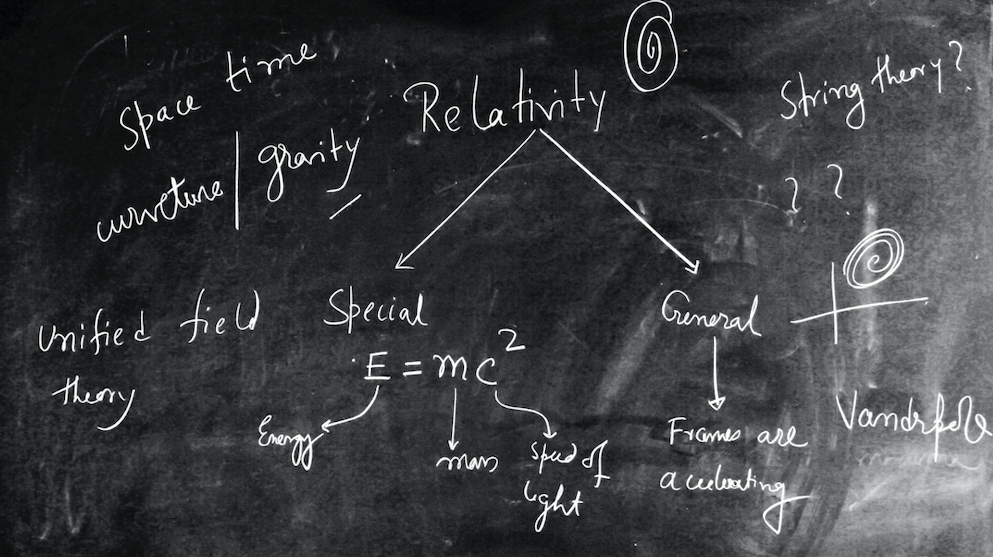 Space time
curveture | gravity
Relativity
String theory?
? ?
Unified field
theory
Special
E = mc²
Energy
mass
Speed of
light
General
Frames are
accelerating
Vanderpole